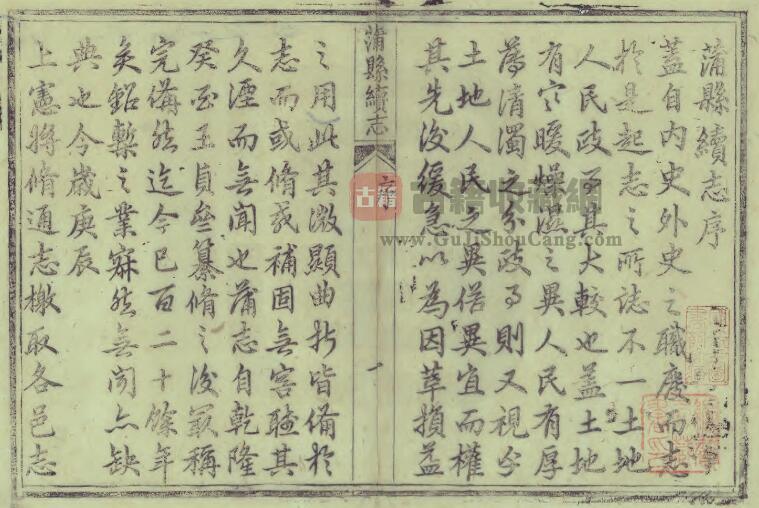 蒲縣續志序
蓋自內史外史之職廢而志
於是起志之所誌不一土地
人民政事其大較也蓋土地
有寒暖燥濕之異人民有厚
薄清濁之分政事則又視乎
土地人民之異俗異宜而權
其先後緩急以為因革損益
蒲縣續志
序
一
之用此其微顯曲折皆備於
志而或脩或補固無容聽其
久湮而無聞也蒲志自乾隆
癸酉王貞纂脩之後最稱
完備然迄今已百二十餘年
矣鉛槧之業寂然無聞亦缺
典也今歲庚辰
上憲將脩通志檄取各邑志
古籍
古籍收藏網
www.GuJiShouCang.com